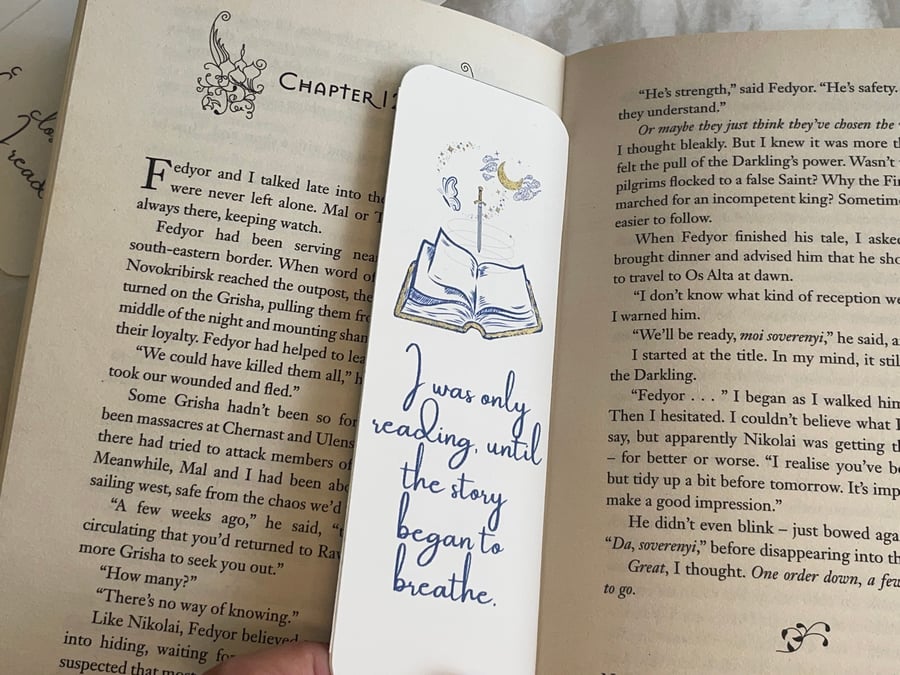 Chapter 12
Fedyor and I talked late into the
were never left alone. Mal or
always there, keeping watch.
Fedyor had been serving near
south-eastern border. When word of
Novokribirsk reached the outpost, the
turned on the Grisha, pulling them
middle of the night and mounting
their loyalty. Fedyor had helped to
"We could have killed them all,"
took our wounded and fled."
Some Grisha hadn't been so
been massacres at Chernast and
there had tried to attack members of
Meanwhile, Mal and I had been
sailing west, safe from the chaos we'd
"A few weeks ago," he said,
circulating that you'd returned to
more Grisha to seek you out."
"How many?"
"There's no way of knowing."
Like Nikolai, Fedyor believed
into hiding, waiting
suspected that most
I was only
reading, until
the story
began to
breathe.
"He's strength," said Fedyor. "He's safety.
they understand."
Or maybe they just think they've chosen the
I thought bleakly. But I knew it was more
felt the pull of the Darkling's power. Wasn't
pilgrims flocked to a false Saint? Why the
marched for an incompetent king?
easier to follow.
When Fedyor finished his tale, I asked
brought dinner and advised him that he
to travel to Os Alta at dawn.
"I don't know what kind of reception
I warned him.
"We'll be ready, moi soverenyi," he said,
I started at the title. In my mind, it
the Darkling.
"Fedyor . . . " I began as I walked him
Then I hesitated. I couldn't believe what I
say, but apparently Nikolai was getting
– for better or worse. "I realise you've
but tidy up a bit before tomorrow. It's
make a good impression."
He didn't even blink – just bowed
"Da, soverenyi," before disappearing into
Great, I thought. One order down, a
to go.